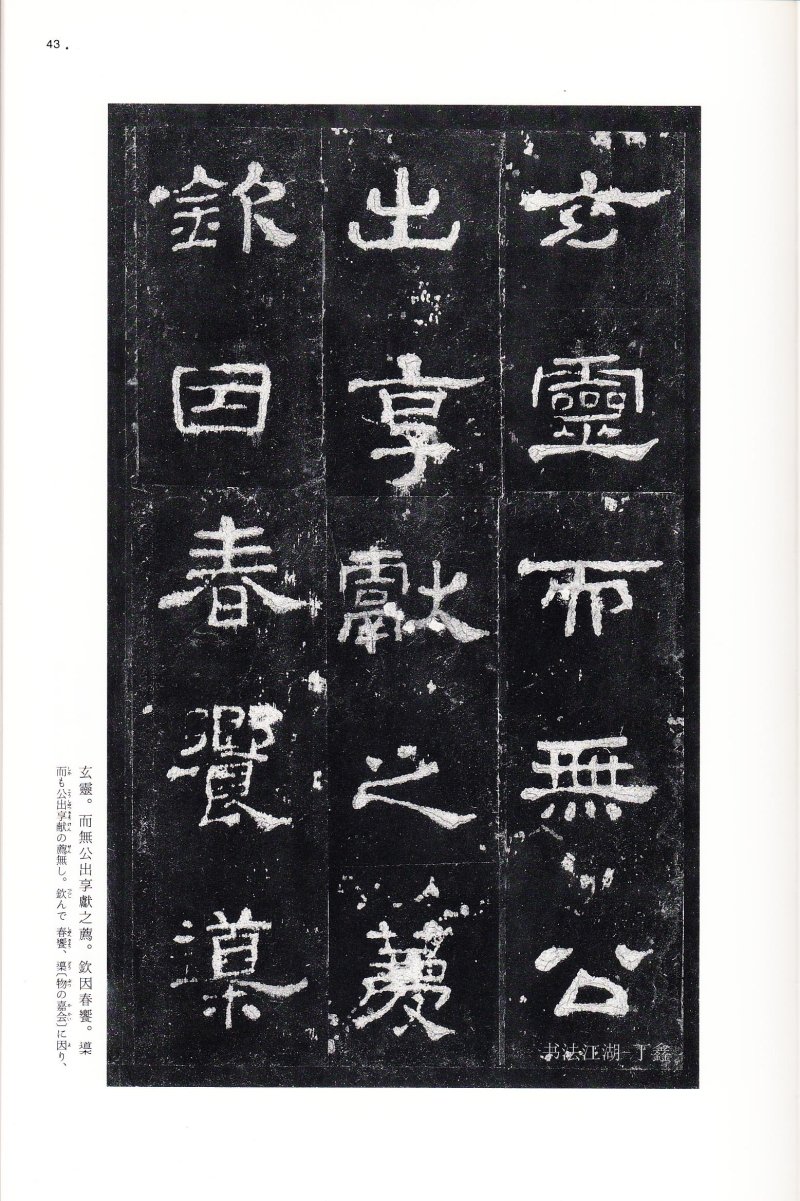 43.
玄靈而無公
出享獻之薦
欽因春饗導
玄靈。而無公出享獻之薦。欽因春饗。導
而も公出享献の薦無し。欽んで春饗、導〔物の嘉会〕に因り、
书法江湖-丁鑫